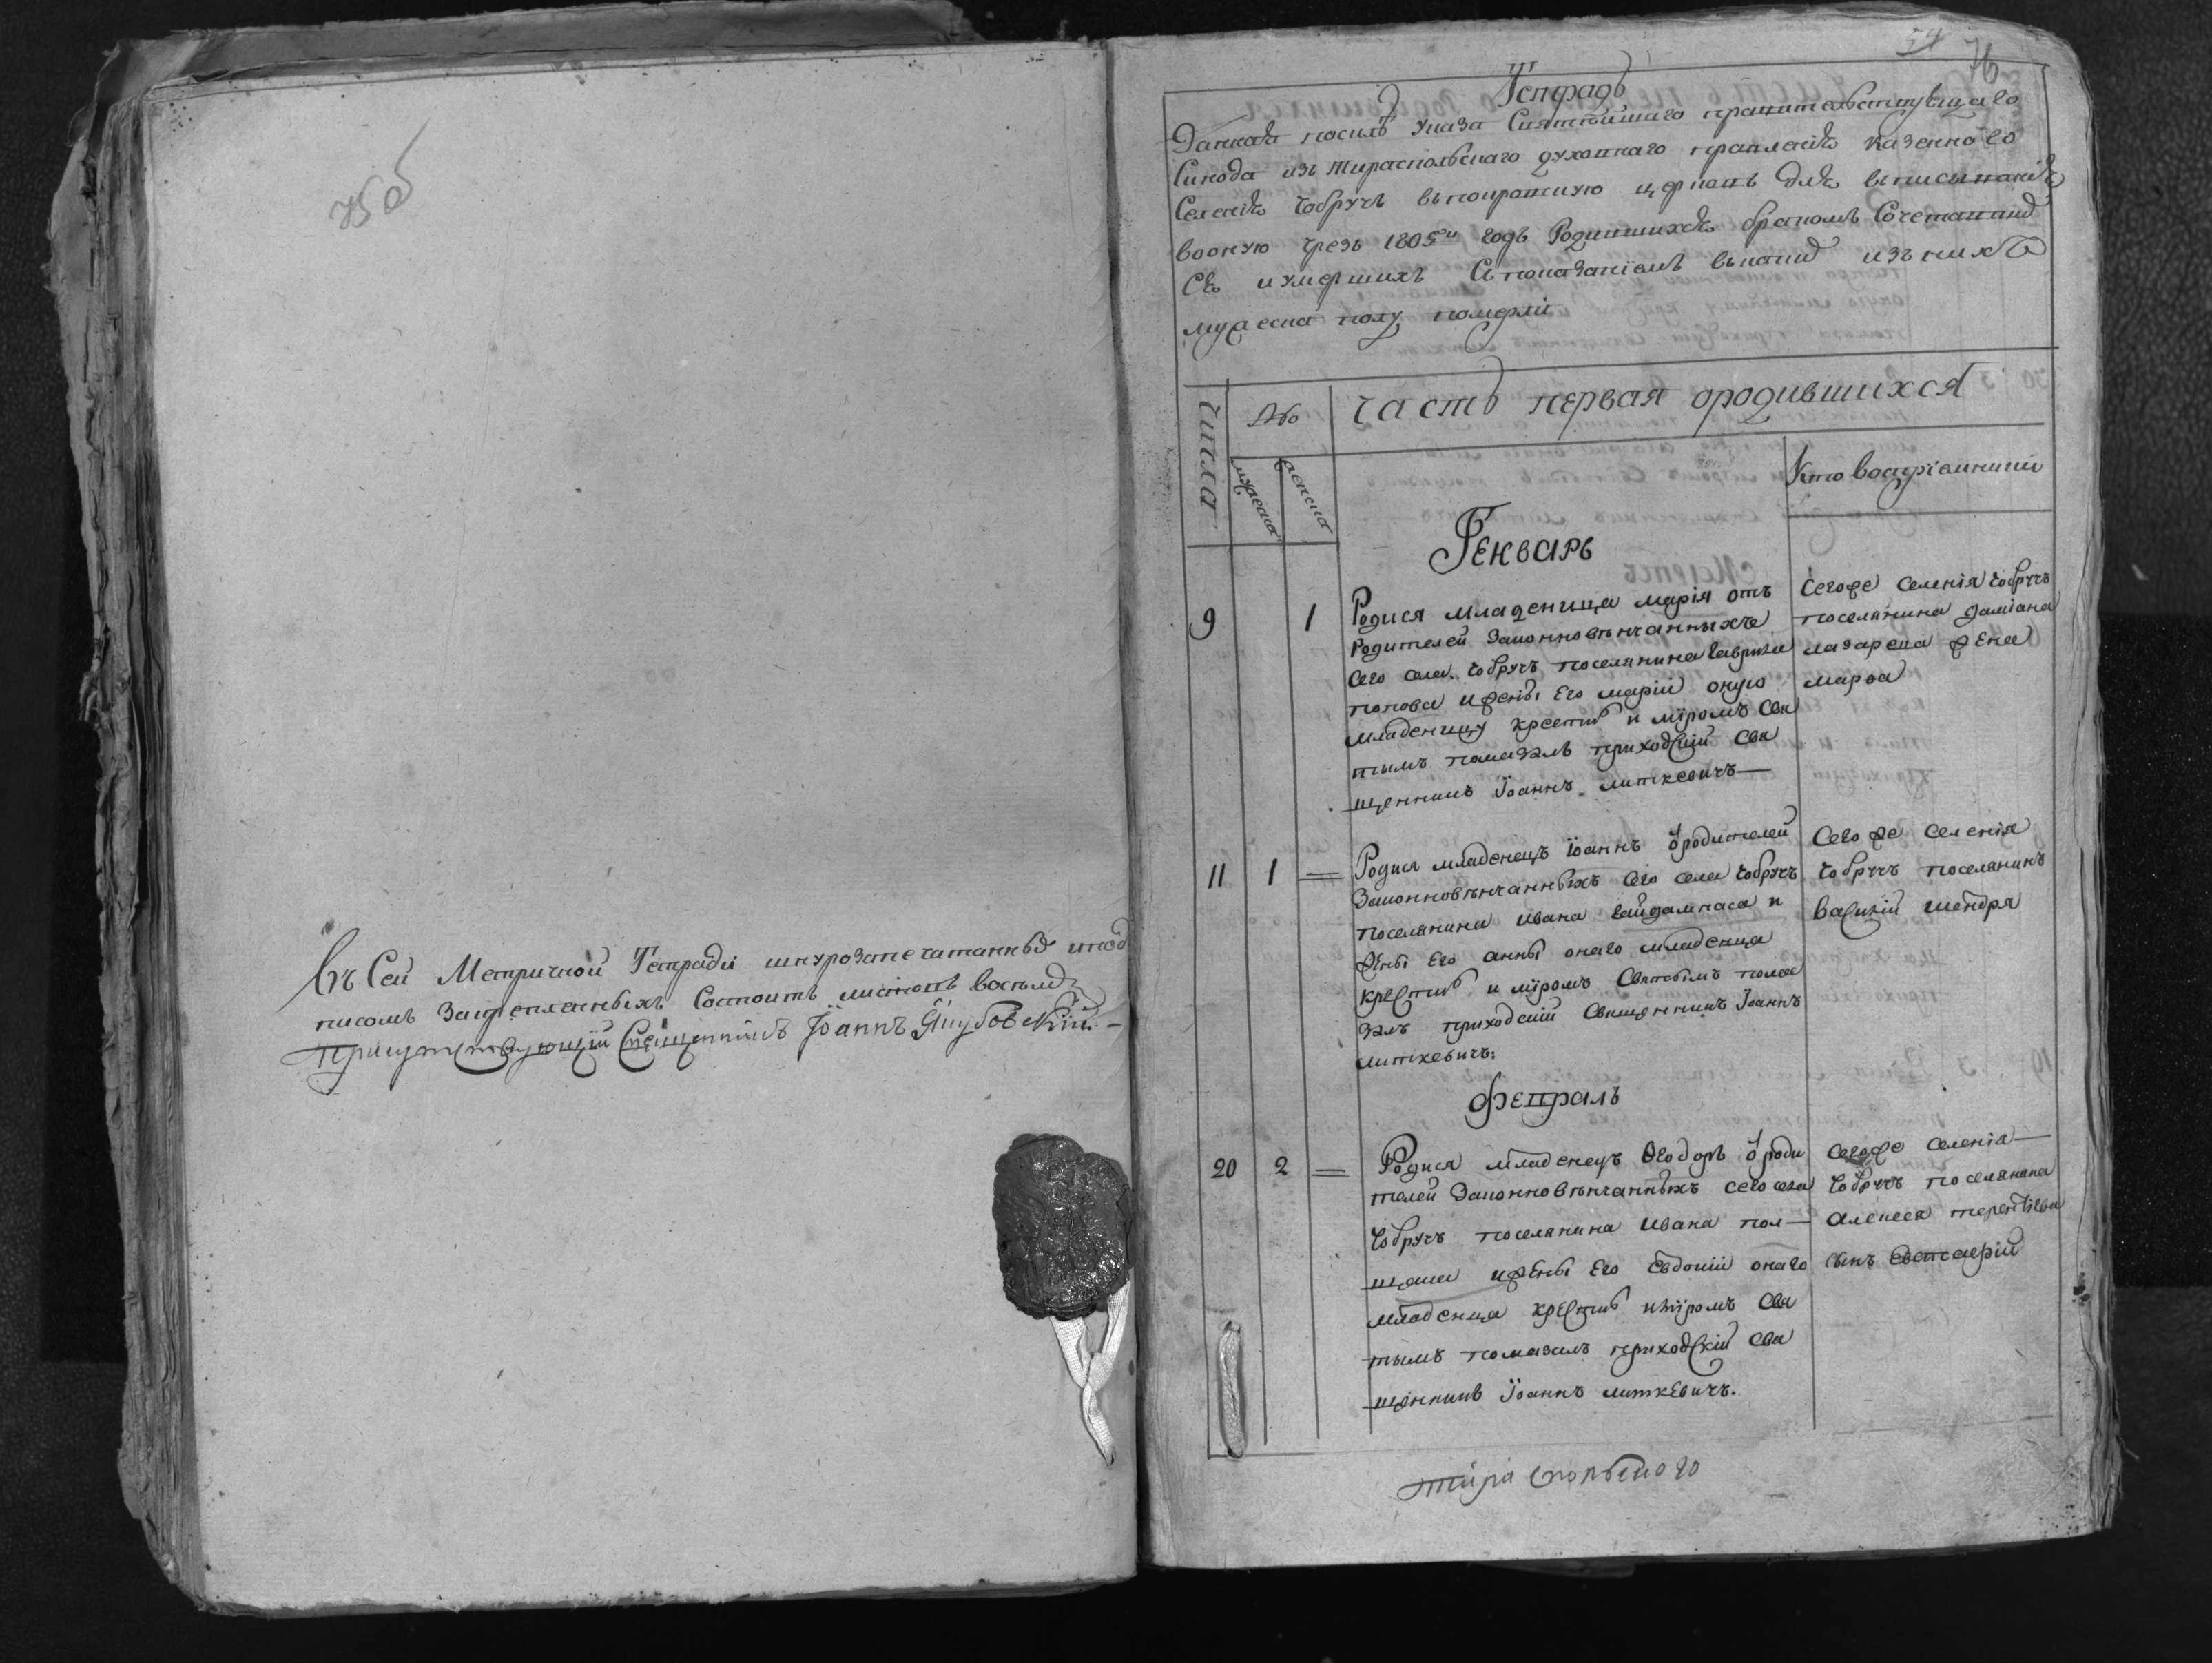 75об
Въ Сей Метричной Тетради шнурозапечатанной и под
писомъ Закрепленныхъ Состоитъ листовъ восемъ
присутствующiй Священникъ Іоаннъ Якубовскій.-
54 76
Тетрадь
Данная посилѣ указа Святѣйшаго правительствующаго
Синода изъ Тираспольскаго духовнаго правленія казенного
Селенія Чобручъ въ покровскую церковь для вписыванія
во оную чрезъ 1805й годъ Родившихся бракомъ Сочетавших
ся и умершихъ Съ показаніемъ изъ нихъ
мужеска полу померли
Числа
№
Часть первая ородившихся
мужеска
женска
Кто восприемники
Генварь
9 1
Родися младеница марія отъ
Родителей Законновѣнчанныхъ
Сего села Чобручъ поселянина гаврила
попова и жены Его маріи оную
младеницу крестилъ и мѵромъ Свя
тымъ помазалъ приходскій Свя
щенникъ Іоаннъ литкевичъ
Сегоже Селенія Чобручъ
поселянина даміана
лазарева жена
марѳа
11 1
Родися младенецъ Іоаннъ ѿ родителей
Законновѣнчанныхъ Сего села Чобручъ
поселянина ивана гайдампаса и
жены Его анны онаго младенца
крестилъ и мѵромъ Святымъ пома
залъ приходскій Священникъ Іоаннъ
литкевичъ:
Сего же Селенія
Чобручъ поселянинъ
василій шендря
февраль
20 2
Родися младенецъ Ѳеодоръ ѿ роди
телей Законновѣнчанныхъ сего села
Чобручъ поселянина ивана пол
щака и жены Его Евдокіи онаго
младенца крестилъ и мѵромъ Свя
тымъ помазалъ приходскій Свя
щенникъ Іоаннъ литкевичъ.
Сегоже Селенія
Чобручъ поселянина
алексея терентіева
сынъ
тираспольского